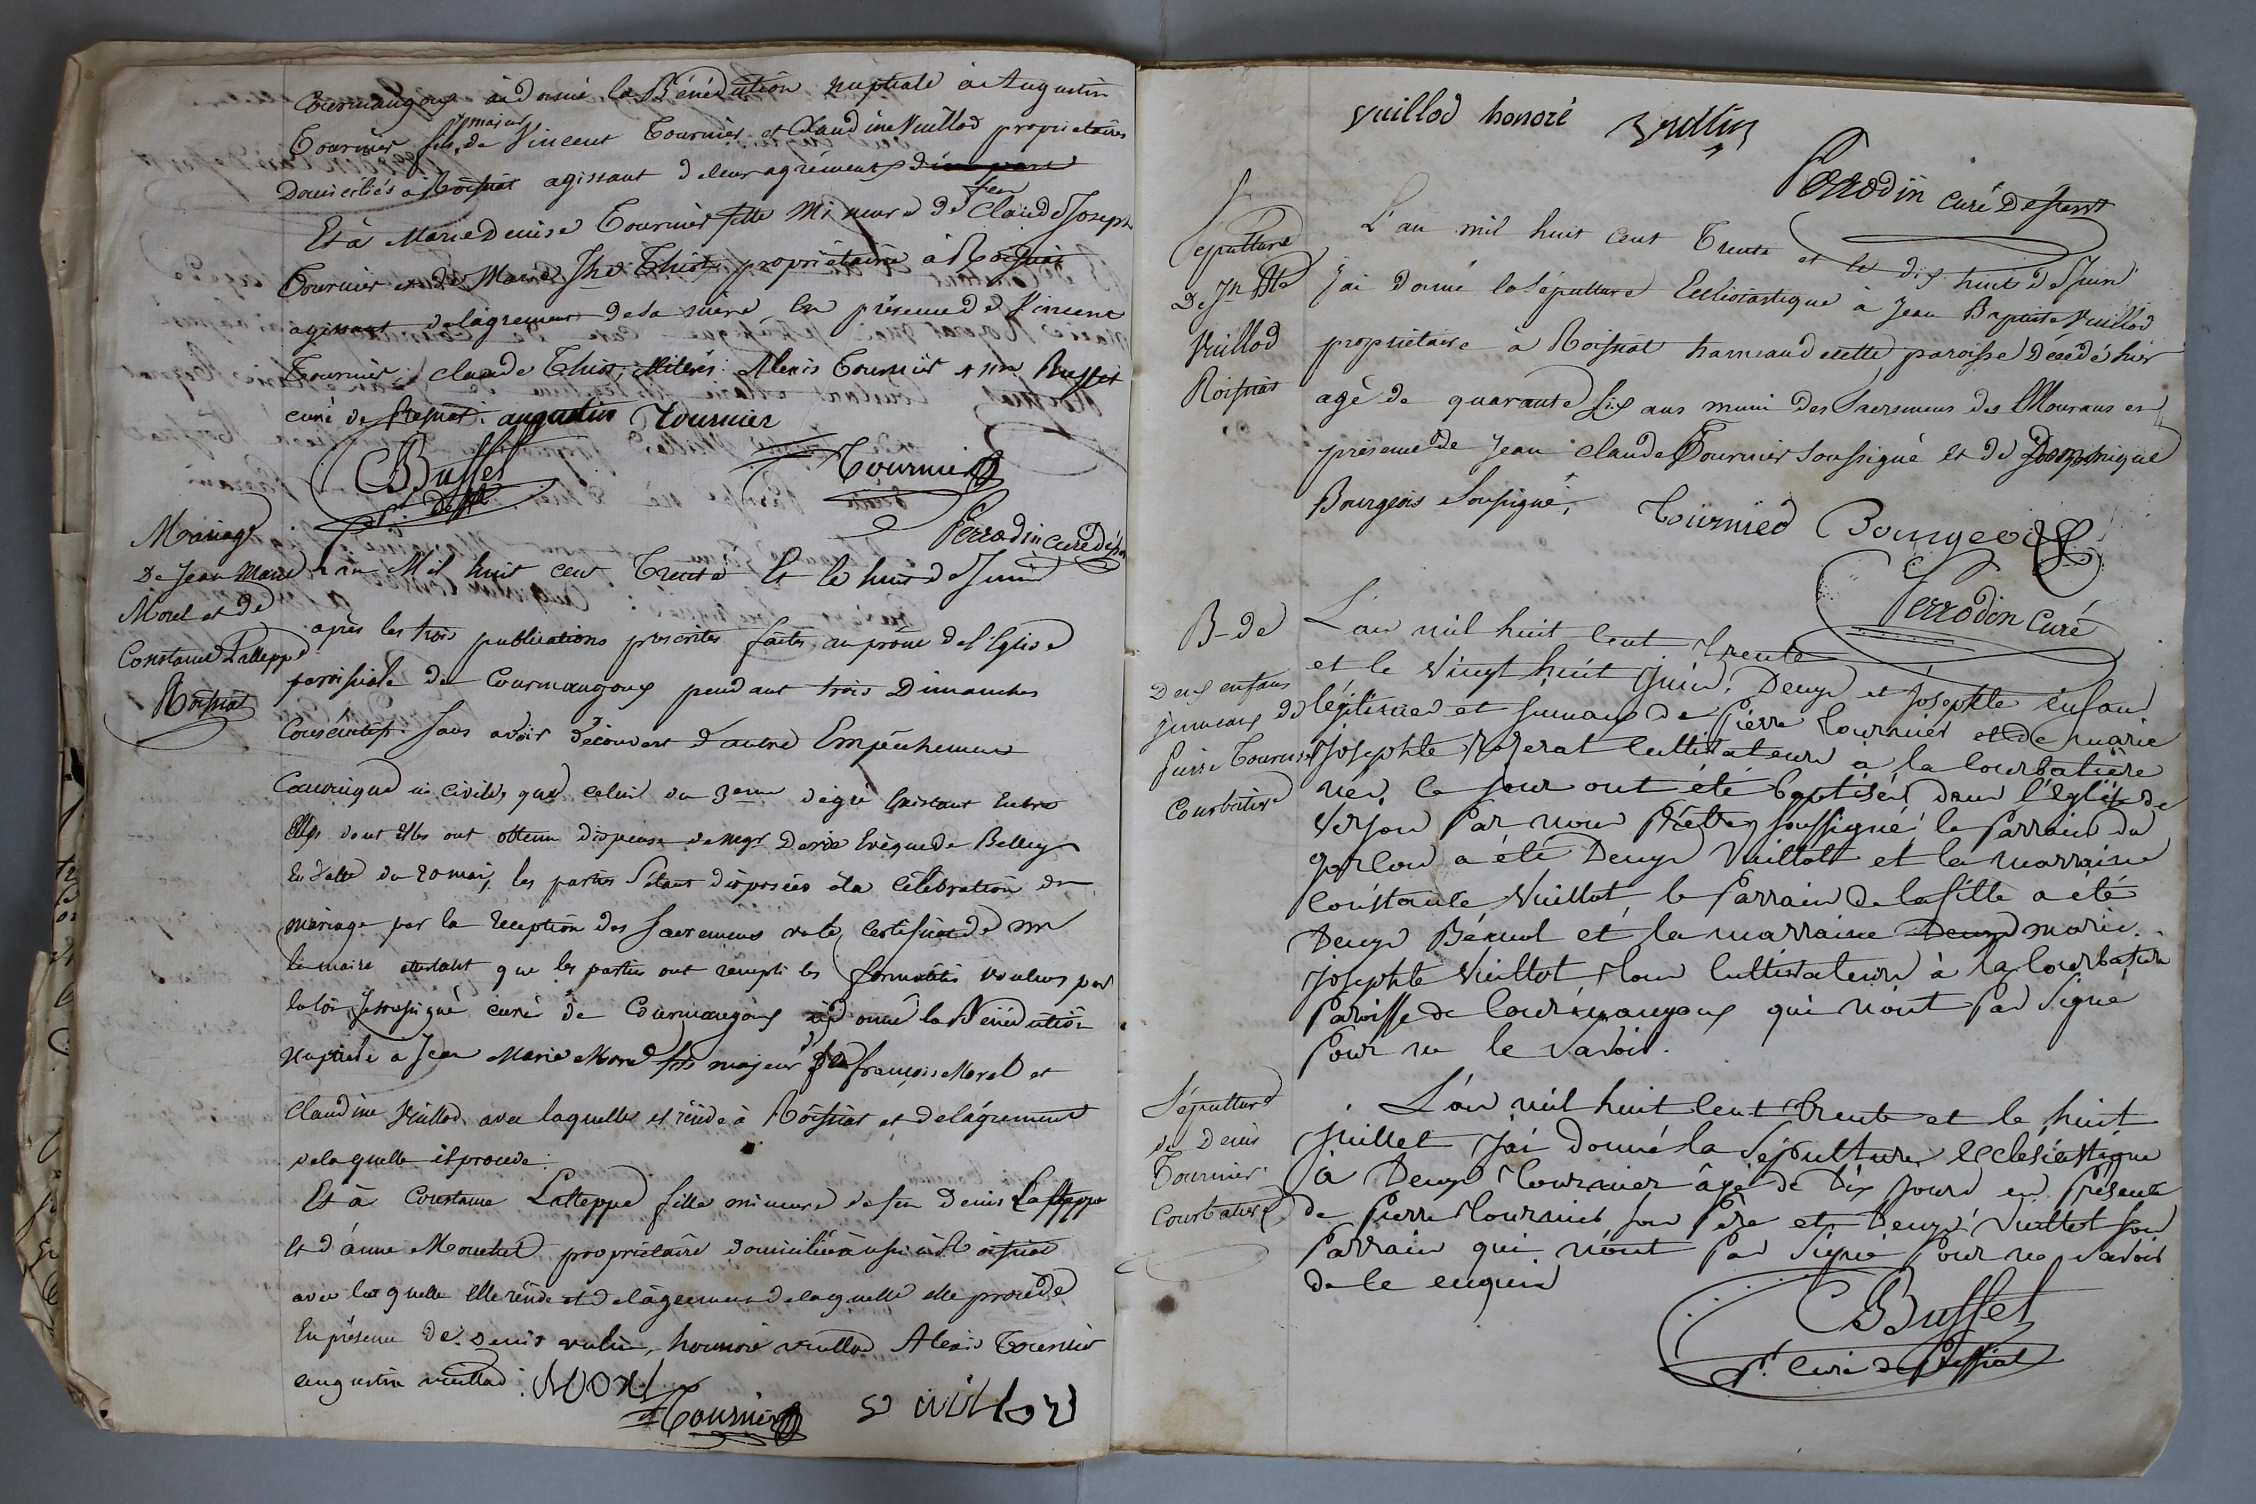 Courmangoux ai donné la Bénédiction nuptiale à Augustin
Tournier fils majeur de Vincent Tournier et Claudine Vuillod proprietaires
Domiciliés à Roissiat agissant de leur agrément d'une part
Et à Marie Denise Tournier fille Mineure de feu Claude Joseph
Tournier et de Marie Jhe Thiot, propriétaire à Roissiat
agissant de l'agrement de sa mère, en présence de Vincent
Tournier, Claude Thiot, Alexis Tournier & mr Buffet
curé de Pressiat. augustin Tournier
CBuffet
Tournier
Perrodin curé
Mariage
De Jean Marie
Morel et de
Constance Lasteppe
Roissiat
L'an Mil huit cent Trente Et le huit de Juin
après les trois publications prescrites faites au prône de l'Eglise
paroissiale de Courmangoux pendant trois Dimanches
Consécutifs. Sans avoir découvert d'autre Empêchement
Canonique ni civil, que celui du 3eme dégré Existant Entre
Elles dont elles ont obtenu dispense de mgr Devie Evêque de Belley
En datte du 20 mai, les parties s'étant disposées à la Célébration du
mariage par la reception des Sacremens vu le certificat de mr
le maire attestant que les parties ont rempli les formalités voulues par
la loi, Je soussigné curé de Courmangoux ai donné la Bénédiction
Nuptiale à Jean Marie Morel fils majeur de françois Morel et
Claudine Vuillod avec laquelle il réside à Roissiat et de l'agrement
de laquelle il procede.
Et à Constance Lasteppe fille mineure de feu Denis Lasteppe
Et d'anne Mouchet propriétaire domiciliée aussi à Roissiat
avec laquelle elle réside et de l'agrement de laquelle elle procède
En présence de Denis vulin, honnoré vuillod Alexis Tournier
augustin vuillod. Morel
Tournier
vuillod
vuillod honoré vullin
Perrodin curé Desserv
Sepulture
De Jn Bte
Vuillod
Roissiat
L'an mil huit cent Trente et le dix huit de Juin
J'ai donné la Sépulture Ecclésiastique à Jean Baptiste Vuillod
propriétaire à Roissiat hameau de cette paroisse Décédé hier
agé de quarante six ans muni des Sacremens des Mourans en
présence de Jean Claude Tournier Soussigné et de Dominique
Bourgeois Soussigné,
Tournier Bourgeois
Perrodin Curé
B- de
Deux enfans
jumeaux de
Pierre Tournier
Courbatière
L'an mil huit Cent Trente
et le vingt huit Juin, Denys et Josephte enfans
légitimes et jumeaux de Pierre Tournier et de marie
Josephte Rozerat Cultivateurs à la Courbatière
nés ce jour ont été baptisés dans l'église de
Verjon Par nous Prêtre soussigné le Parrain du
garçon a été Denys Vuillot et la marraine
Constance Vuillot, le Parrain de la fille a été
Denys Béruel et la marraine Denys marie
Josephte Vuillot, tous Cultivateurs à la Courbatière
Paroisse de Courmangoux qui n'ont Pas Signé
Pour ne le savoir.
Sépulture
de Denis
Tournier
Courbatière
L'an mil huit Cent trente et le huit
Juillet J'ai donné la Sépulture ecclésiastique
à Denys Tournier âgé de Dix jours en Présence
de Pierre Tournier son Père et Denys Vuillot son
Parrain qui n'ont Pas Signé Pour ne savoir
de le enquis
CBuffet
Pr. Curé de Pressiat